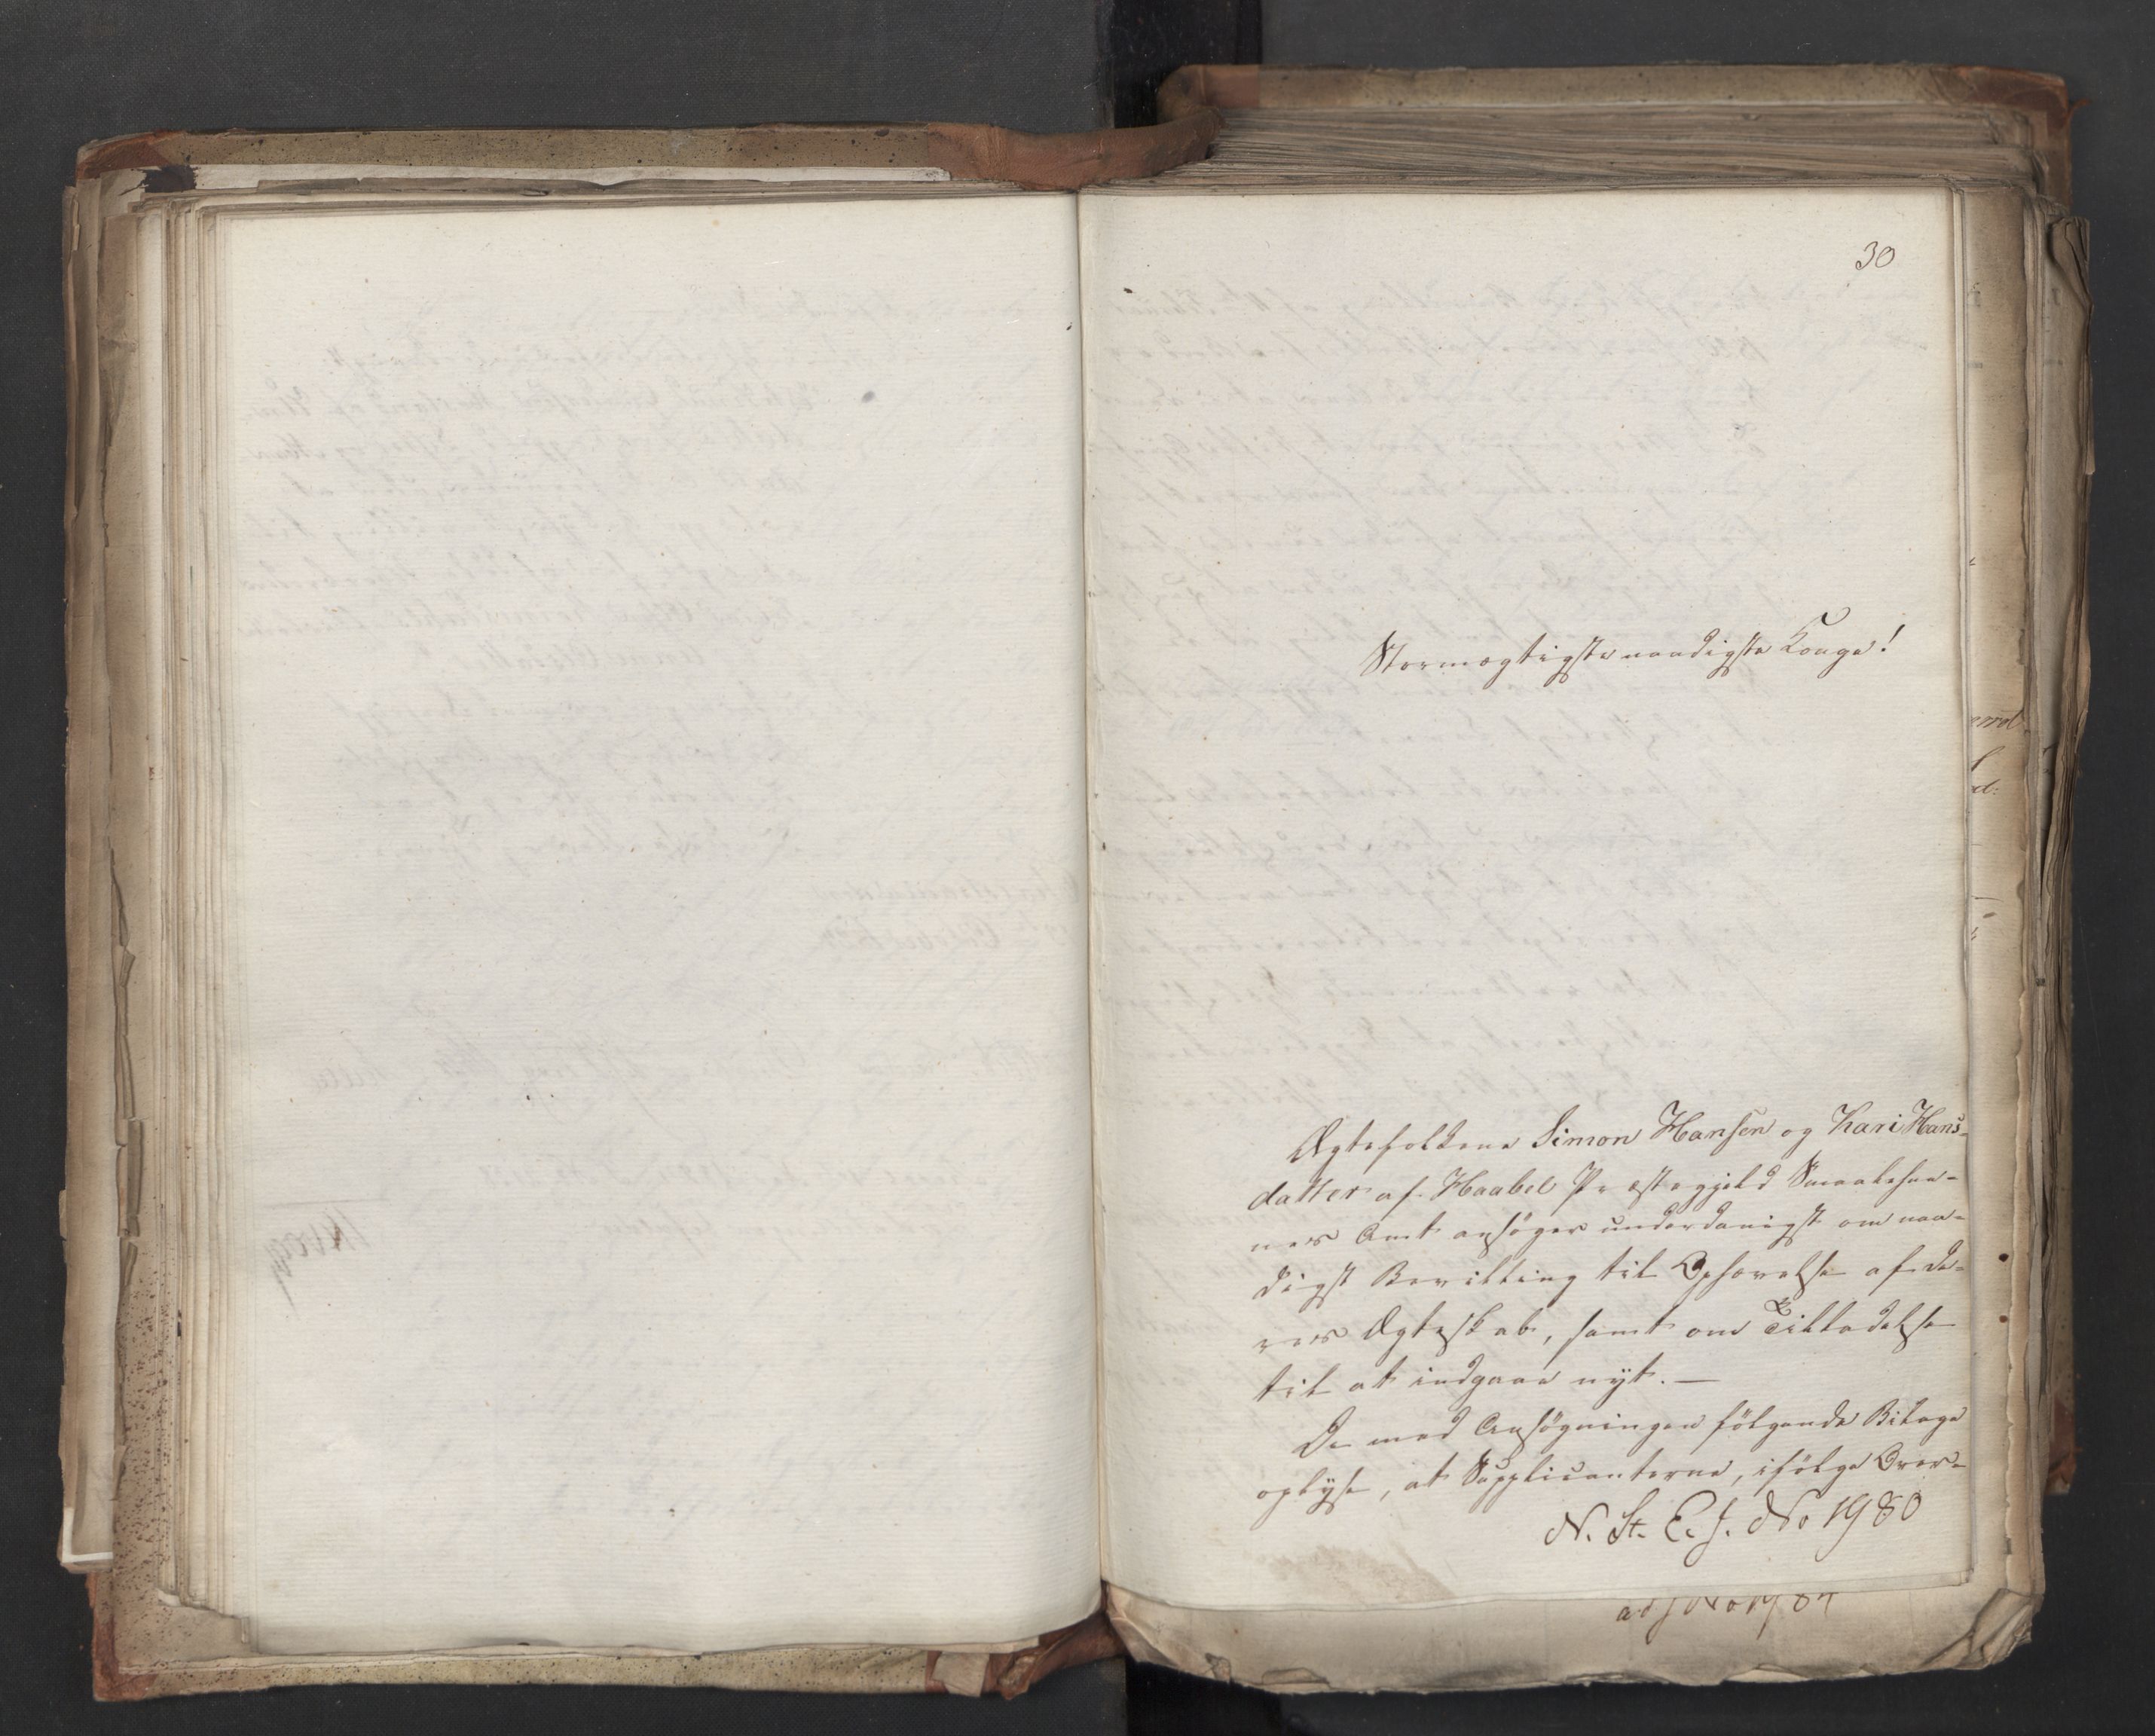 30
Stormægtigste naadigste Konge!
Ægtefolkene Simon Hansen og Kari Hans-
datter af Haabøl Præstegjeld Smaalehne-
nes Amt ansøger underdanigst om naa-
digst Bevilling til Ophævelse af de-
res Ægteskab, samt om Tilladelse
til at indgaae nÿt. —
De med Ansøgningen følgende Bilage
oplÿse, at Supplicanterne, ifølge Over-
N. St. E. J. No 1980